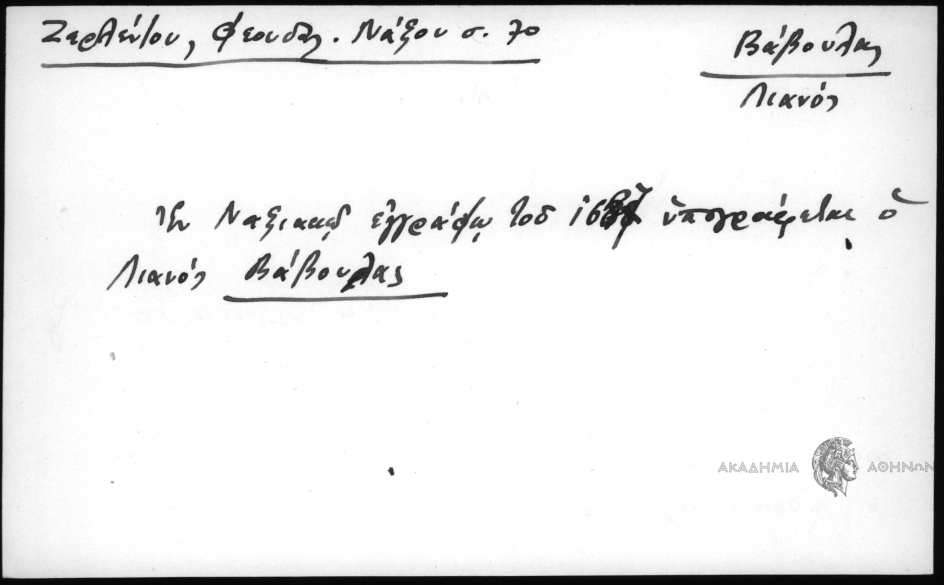 Ζερλέντου, Φεουδαλ. Νάξου σ. 70
Βάβουλας
Λιανός
Ἐν Ναξιακῷ ἐγγράφῳ τοῦ ὑπογράφεται ὁ
Λιανός Βάβουλας
ΑΚΑΔΗΜΙΑ ΑΘΗΝΩΝ